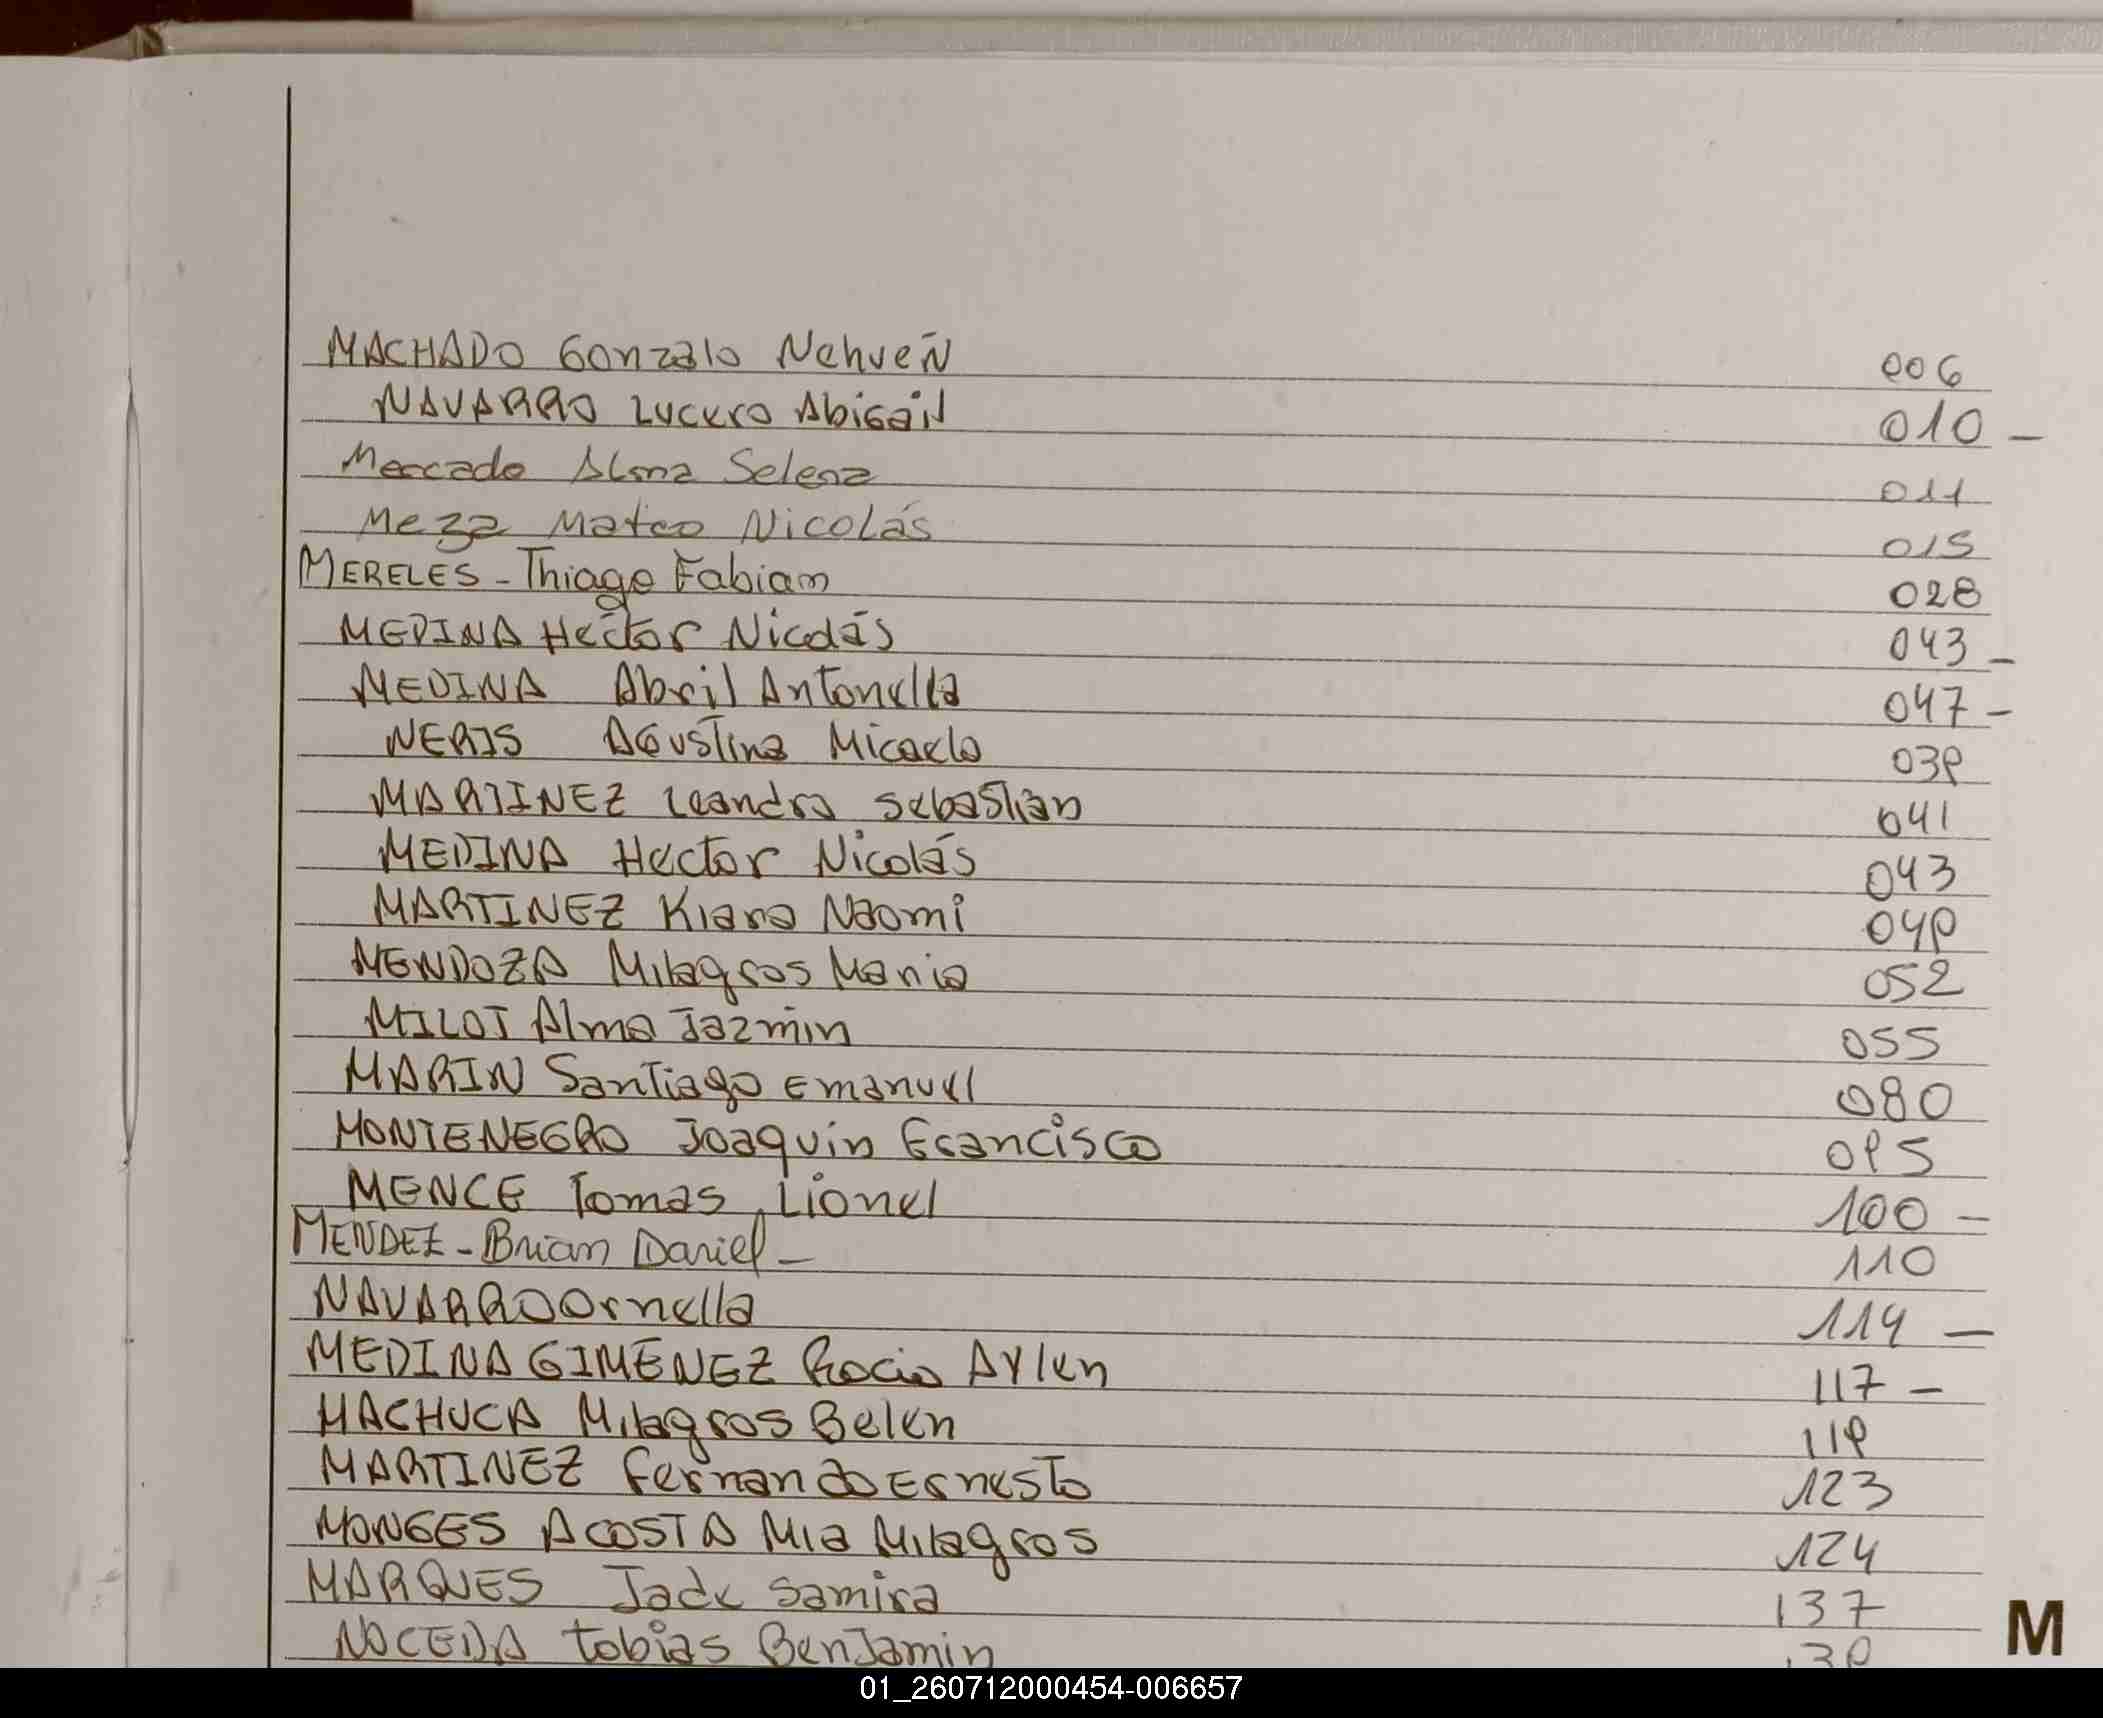 MACHADO Gonzalo Nehueñ 006
NAVARRO Lucero Abigail 010 -
Mercado Alma Selena 011
Meza Mateo Nicolás 015
MERELES - Thiago Fabian 028
MEDINA Hector Nicolás 043 -
MEDINA Abril Antonella 047 -
NERIS Agustina Micaela 039
MARTINEZ Leandro Sebastián 041
MEDINA Hector Nicolás 043
MARTINEZ Kiara Naomi 049
MENDOZA Milagros Maria 052
MILOI Alma Jazmin 055
MARIN Santiago Emanuel 080
MONTENEGRO Joaquin Francisco 095
MENCE Tomas Lionel 100 -
MENDEZ - Brian Daniel - 110
NAVARRO Ornella 114 -
MEDINA GIMENEZ Rocio Aylen 117 -
MACHUCA Milagros Belen 119
MARTINEZ Fernando Ernesto 123
MONGES ACOSTA Mia Milagros 124
MARQUES Jade Samira 137
NOCEDA Tobias Benjamin
M
01_260712000454-006657